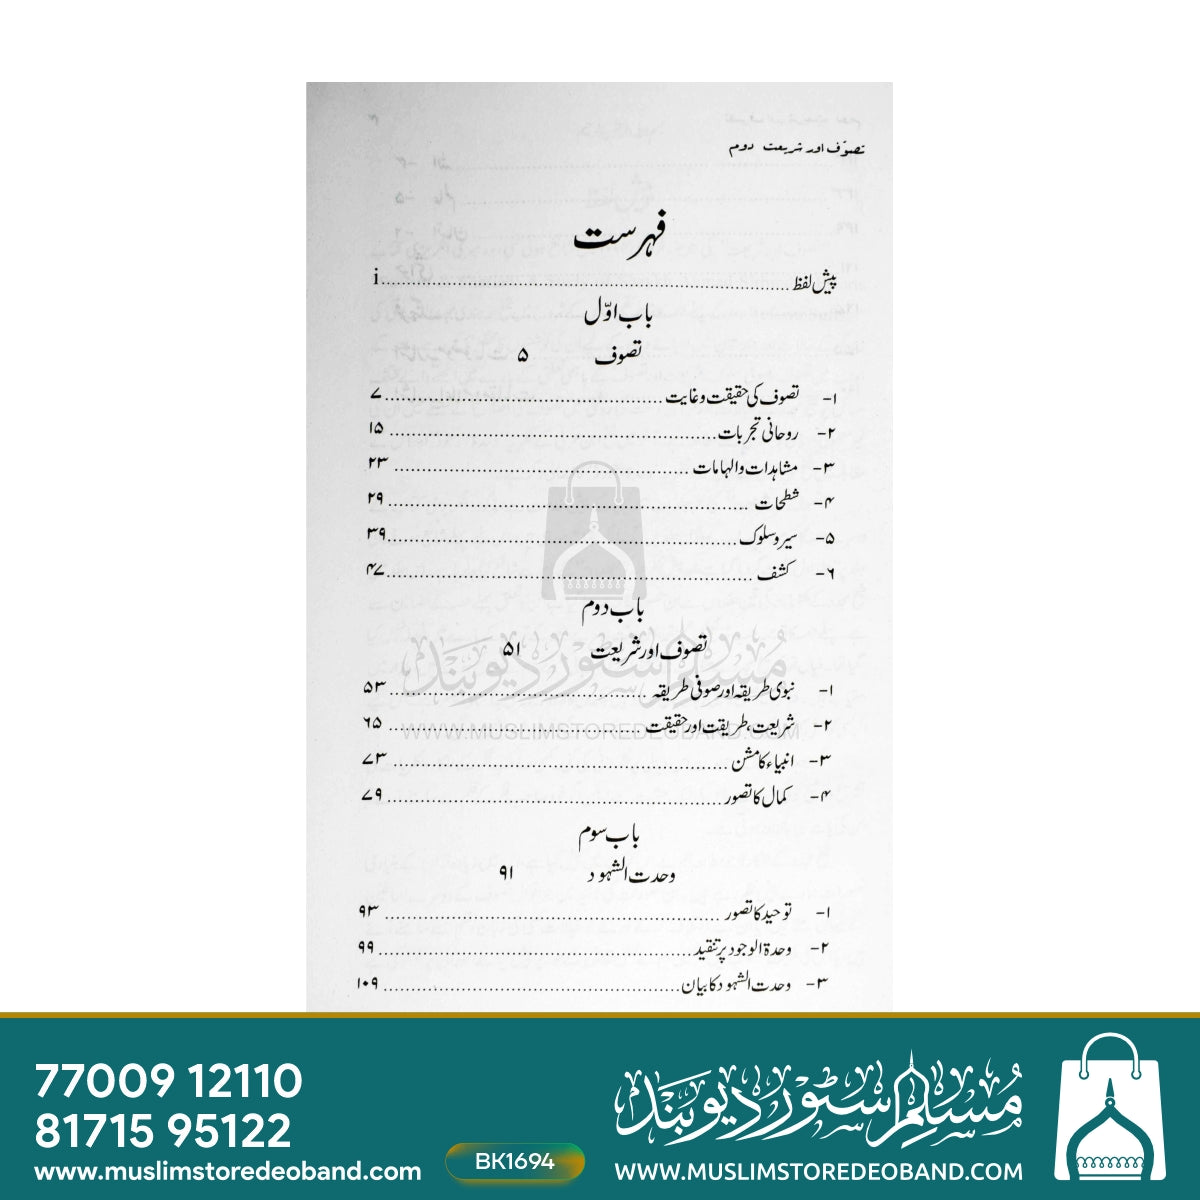 تصوّف اور شریعت دوم
فہرست
پیش لفظ ........ i
باب اوّل
تصوف ۵
۱- تصوف کی حقیقت و غایت ........ ۷
۲- روحانی تجربات ........ ۱۵
۳- مشاہدات و الہامات ........ ۲۳
۴- شطحات ........ ۲۹
۵- سیر و سلوک ........ ۳۹
۶- کشف ........ ۴۷
باب دوم
تصوف اور شریعت ۵۱
۱- نبوی طریقہ اور صوفی طریقہ ........ ۵۳
۲- شریعت، طریقت اور حقیقت ........ ۶۵
۳- انبیاء کا مشن ........ ۷۳
۴- کمال کا تصور ........ ۷۹
باب سوم
وحدت الشہود ۹۱
۱- توحید کا تصور ........ ۹۳
۲- وحدۃ الوجود پر تنقید ........ ۹۹
۳- وحدت الشہود کا بیان ........ ۱۰۹
مسلم سٹور دیوبند
WWW.MUSLIMSTOREDEOBAND.COM
77009 12110
81715 95122
www.muslimstoredeoband.com
BK1694
مُسلم سٹور دیوبند
WWW.MUSLIMSTOREDEOBAND.COM